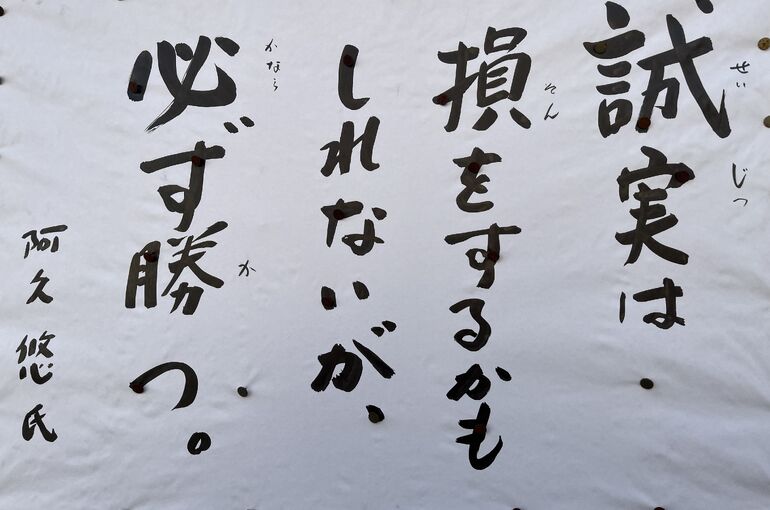 誠実は
せいじつ
損をするかも
そん
しれないが、
必ず勝つ。
かなら
か
阿久悠氏